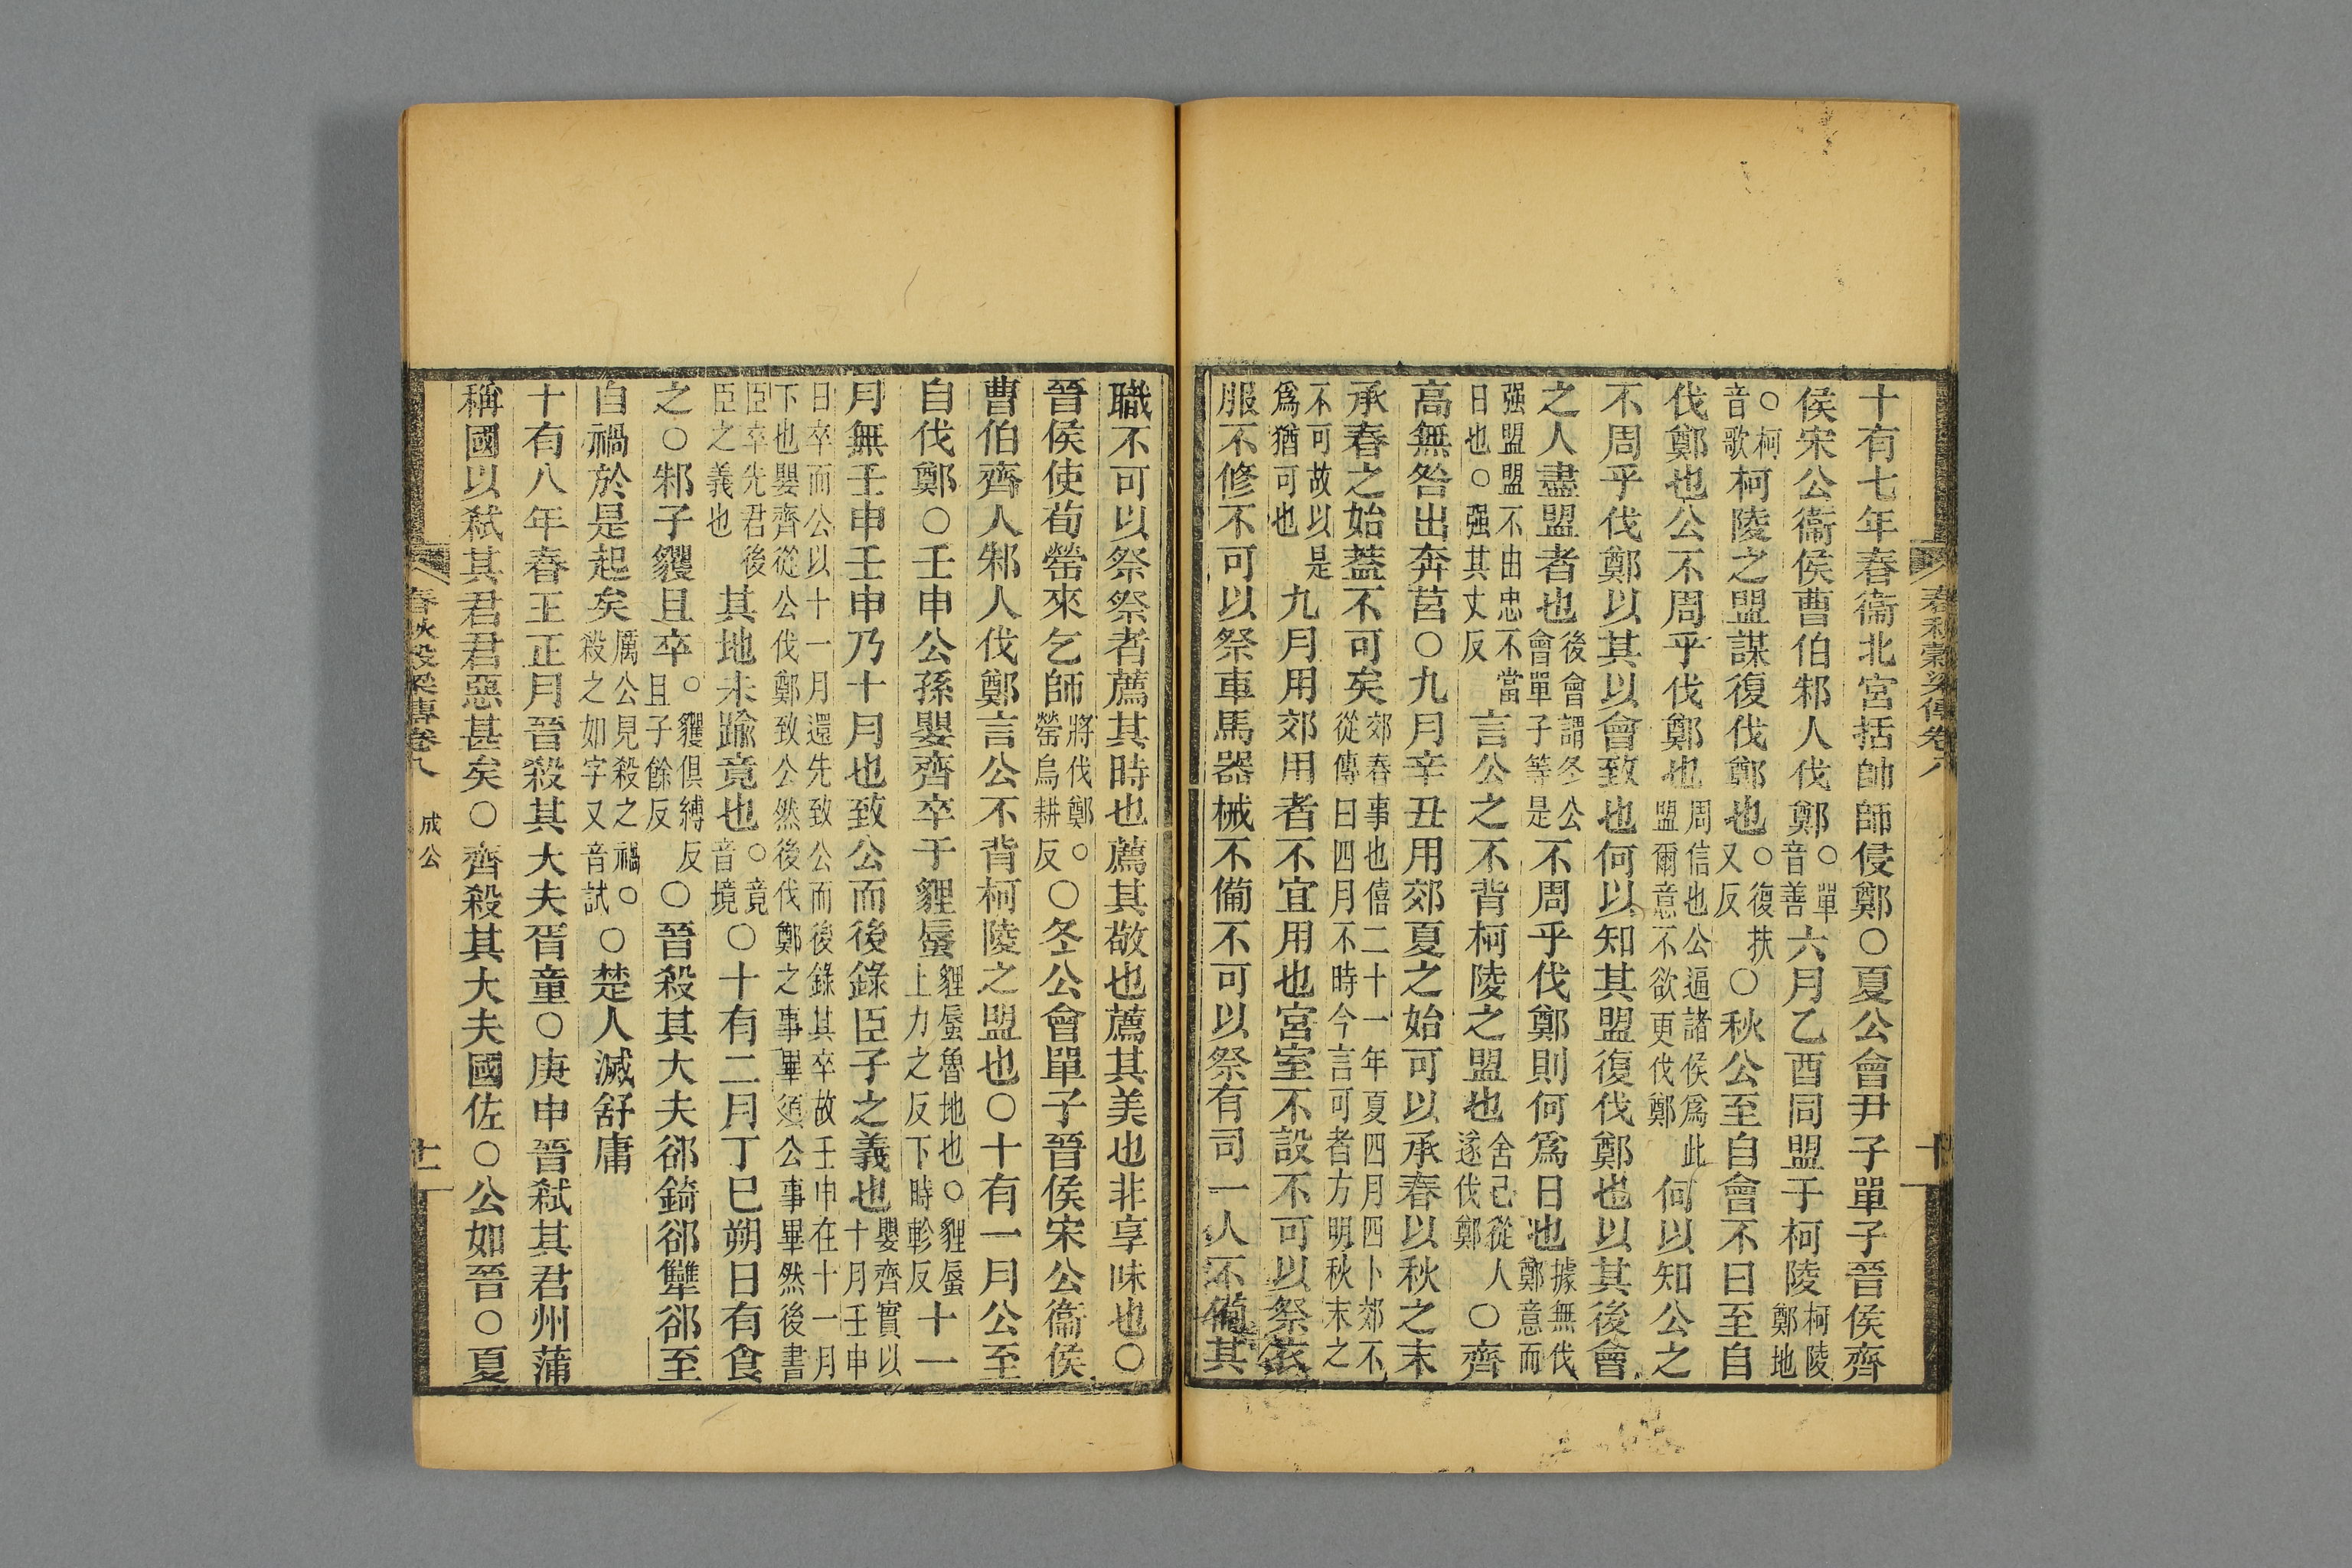 春秋穀梁傳卷八 十
十有七年春衞北宮括帥師侵鄭○夏公會尹子單子晉侯齊
侯宋公衞侯曹伯邾人伐鄭○單音善六月乙酉同盟于柯陵柯陵鄭地
○柯音歌柯陵之盟謀復伐鄭也○復扶又反○秋公至自會不曰至自
伐鄭也公不周乎伐鄭也周信也公逼諸侯爲此盟爾意不欲更伐鄭何以知公之
不周乎伐鄭以其以會致也何以知其盟復伐鄭也以其後會
之人盡盟者也後會謂冬公會單子等是不周乎伐鄭則何爲日也據無伐鄭意而
强盟盟不由忠不當日也○强其丈反言公之不背柯陵之盟也舍己從人遂伐鄭○齊
高無咎出奔莒○九月辛丑用郊夏之始可以承春以秋之末
承春之始蓋不可矣郊春事也僖二十一年夏四月四卜郊不從傳曰四月不時今言可者方明秋末之
不可故以是爲猶可也九月用郊用者不宜用也宮室不設不可以祭衣
服不修不可以祭車馬器械不備不可以祭有司一人不備其
職不可以祭祭者薦其時也薦其敬也薦其美也非享味也○
晉侯使荀罃來乞師將伐鄭○罃烏耕反○冬公會單子晉侯宋公衞侯
曹伯齊人邾人伐鄭言公不背柯陵之盟也○十有一月公至
自伐鄭○壬申公孫嬰齊卒于貍蜃貍蜃魯地也○貍蜃上力之反下時軫反十一
月無壬申壬申乃十月也致公而後錄臣子之義也嬰齊實以十月壬申
日卒而公以十一月還先致公而後錄其卒故壬申在十一月下也嬰齊從公伐鄭致公然後伐鄭之事畢須公事畢然後書
臣卒先君後臣之義也其地未踰竟也○竟音境○十有二月丁巳朔日有食
之○邾子貜且卒○貜俱縛反且子餘反○晉殺其大夫郤錡郤犨郤至
自禍於是起矣厲公見殺之禍○殺之如字又音試○楚人滅舒庸
十有八年春王正月晉殺其大夫胥童○庚申晉弒其君州蒲
稱國以弒其君君惡甚矣○齊殺其大夫國佐○公如晉○夏
春秋穀梁傳卷八 成公 十一